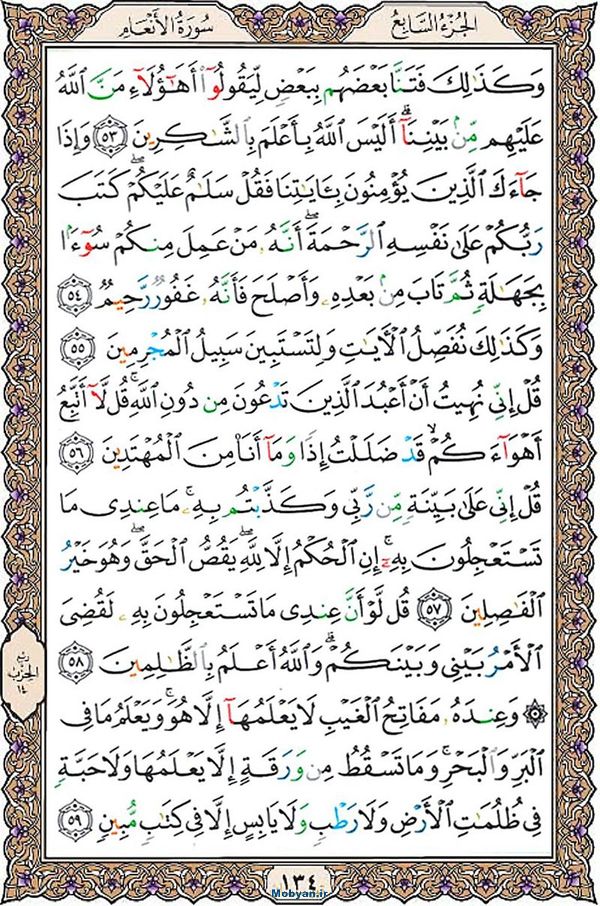 سُورَةُ الأَنْعَام
الجُزءُ السَّابِع
وَكَذَٰلِكَ فَتَنَّا بَعْضَهُم بِبَعْضٍ لِّيَقُولُوٓا۟ أَهَـٰٓؤُلَآءِ مَنَّ ٱللَّهُ
عَلَيْهِم مِّنۢ بَيْنِنَآ ۗ أَلَيْسَ ٱللَّهُ بِأَعْلَمَ بِٱلشَّـٰكِرِينَ ٥٣ وَإِذَا
جَآءَكَ ٱلَّذِينَ يُؤْمِنُونَ بِـَٔايَـٰتِنَا فَقُلْ سَلَـٰمٌ عَلَيْكُمْ ۖ كَتَبَ
رَبُّكُمْ عَلَىٰ نَفْسِهِ ٱلرَّحْمَةَ ۖ أَنَّهُۥ مَنْ عَمِلَ مِنكُمْ سُوٓءًۢا
بِجَهَـٰلَةٍ ثُمَّ تَابَ مِنۢ بَعْدِهِۦ وَأَصْلَحَ فَأَنَّهُۥ غَفُورٌ رَّحِيمٌ ٥٤
وَكَذَٰلِكَ نُفَصِّلُ ٱلْـَٔايَـٰتِ وَلِتَسْتَبِينَ سَبِيلُ ٱلْمُجْرِمِينَ ٥٥
قُلْ إِنِّى نُهِيتُ أَنْ أَعْبُدَ ٱلَّذِينَ تَدْعُونَ مِن دُونِ ٱللَّهِ ۚ قُل لَّآ أَتَّبِعُ
أَهْوَآءَكُمْ ۙ قَدْ ضَلَلْتُ إِذًا وَمَآ أَنَا۠ مِنَ ٱلْمُهْتَدِينَ ٥٦
قُلْ إِنِّى عَلَىٰ بَيِّنَةٍ مِّن رَّبِّى وَكَذَّبْتُم بِهِۦ ۚ مَا عِندِى مَا
تَسْتَعْجِلُونَ بِهِۦٓ ۚ إِنِ ٱلْحُكْمُ إِلَّا لِلَّهِ ۖ يَقُصُّ ٱلْحَقَّ ۖ وَهُوَ خَيْرُ
ٱلْفَـٰصِلِينَ ٥٧ قُل لَّوْ أَنَّ عِندِى مَا تَسْتَعْجِلُونَ بِهِۦ لَقُضِىَ
ٱلْأَمْرُ بَيْنِى وَبَيْنَكُمْ ۗ وَٱللَّهُ أَعْلَمُ بِٱلظَّـٰلِمِينَ ٥٨
ربع
الحزب
١٤
۞ وَعِندَهُۥ مَفَاتِحُ ٱلْغَيْبِ لَا يَعْلَمُهَآ إِلَّا هُوَ ۚ وَيَعْلَمُ مَا فِى
ٱلْبَرِّ وَٱلْبَحْرِ ۚ وَمَا تَسْقُطُ مِن وَرَقَةٍ إِلَّا يَعْلَمُهَا وَلَا حَبَّةٍ
فِى ظُلُمَـٰتِ ٱلْأَرْضِ وَلَا رَطْبٍ وَلَا يَابِسٍ إِلَّا فِى كِتَـٰبٍ مُّبِينٍ ٥٩
١٣٤
Mobyan.ir